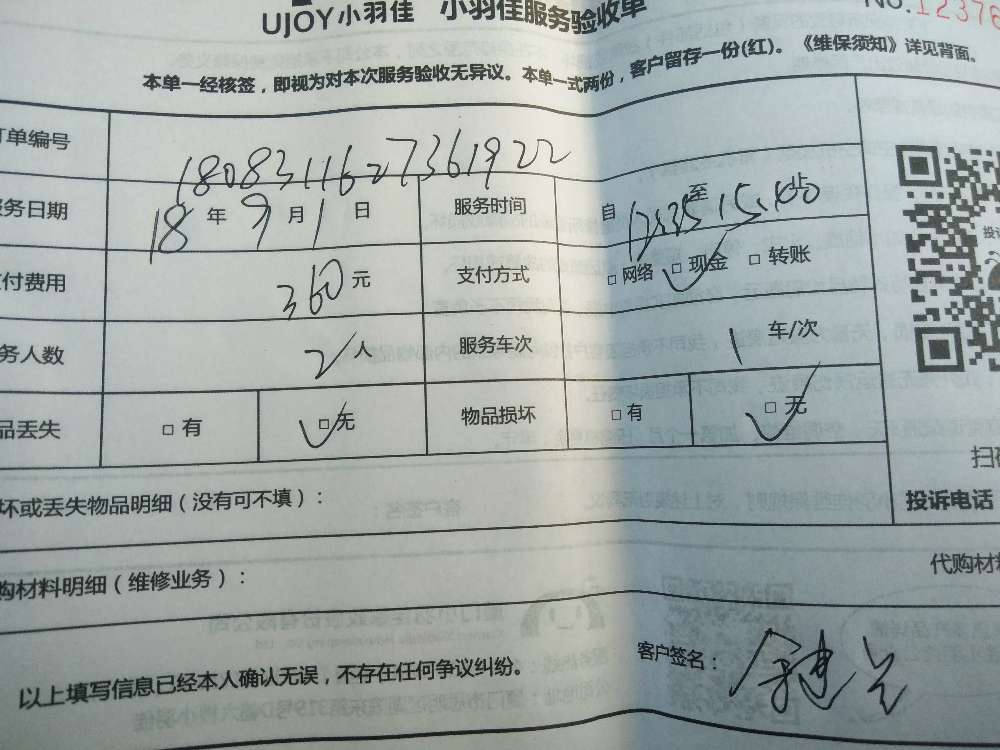 UJOY小羽佳 小羽佳服务验收单
No.12376
本单一经核签，即视为对本次服务验收无异议。本单一式两份，客户留存一份(红)。《维保须知》详见背面。
订单编号 1808311627361922
服务日期 18年9月1日 服务时间 自 至 15:00止
付费用 360元 支付方式 □网络 □现金 □转账
务人数 2人 服务车次 1车/次
品丢失 □有 □无 物品损坏 □有 □无
坏或丢失物品明细（没有可不填）：
扫码
投诉电话
购材料明细（维修业务）：
代购材料
以上填写信息已经本人确认无误，不存在任何争议纠纷。
客户签名：